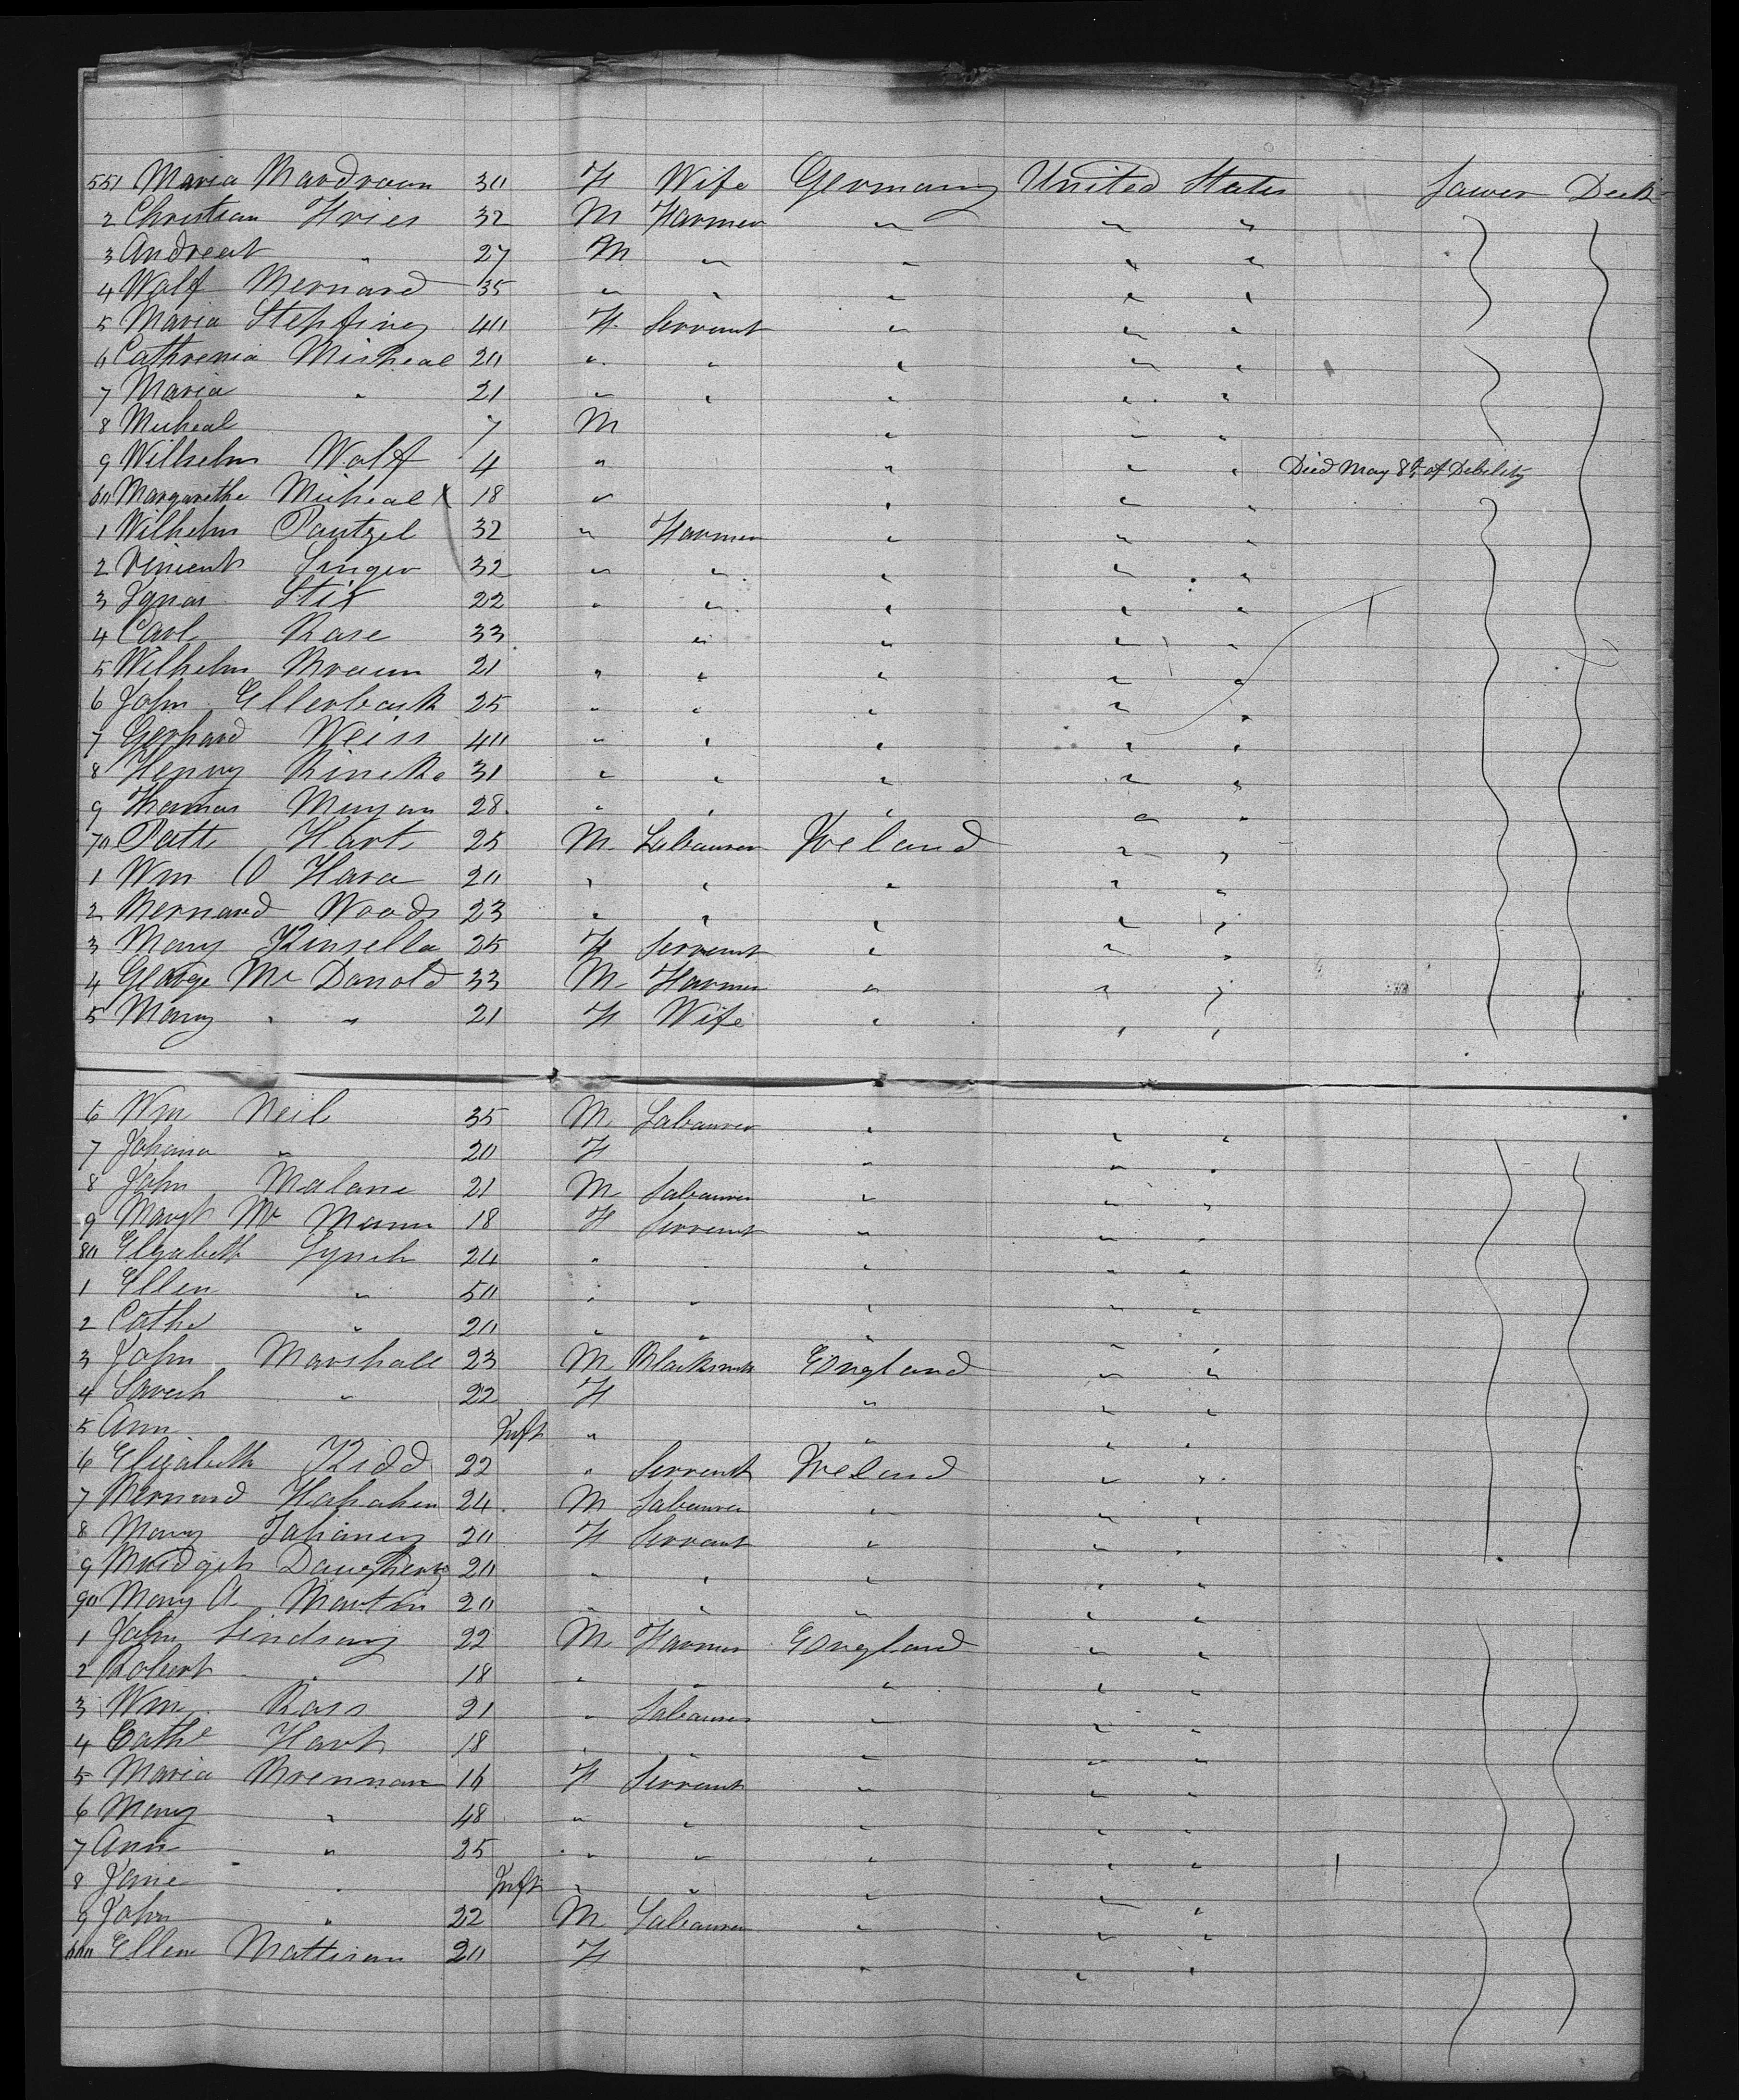 551 Maria Bardroun 30 F Wife Germany United States Lower Deck
2 Christian Fries 32 M Farmer " " "
3 Andreat " 27 M " " " "
4 Wolf Bernard 35 " " " " "
5 Maria Stepfiney 40 F Servant " " "
6 Cathrenia Micheal 20 " " " " "
7 Maria " 21 " " " " "
8 Micheal 7 M " " "
9 Wilhelm Wolf 4 " " " " Died May 8th of Debility
60 Margarethe Micheal X 18 " " " "
1 Wilhelm Pautzel 32 " Farmer " " "
2 Vincent Singer 32 " " " " "
3 Ignas Stix 22 " " " " "
4 Carl Rose 33 " " " "
5 Wilhelm Braun 21 " " " " "
6 John Ellerbauk 25 " " " " "
7 Gerhard Weiss 40 " " " " "
8 Henry Rineke 31 " " " " "
9 Thomas Meyan 28 " " " " "
70 Patk Hart 25 M Labourer Ireland " "
1 Wm O Hara 20 " " " " "
2 Bernard Woods 23 " " " " "
3 Mary Kinsella 25 F Servant " " "
4 George Mc Donold 33 M Farmer " " "
5 Mary " " 21 F Wife " " "
6 Wm Neil 35 M Labourer " " "
7 Johana " 20 F " " "
8 John Malone 21 M Labourer " " "
9 Margt Mc Mann 18 F Servant " " "
80 Elizabeth Lynch 24 " " " " "
1 Ellen " 50 " " " " "
2 Cathe " 20 " " " " "
3 John Marshall 23 M Blacksmith England " "
4 Sarah " 22 F " " "
5 Ann Inft " " " "
6 Elizabeth Kidd 22 " Servant Ireland " "
7 Bernard Hahahen 24 M Labourer " " "
8 Mary Tahaney 20 F Servant " " "
9 Bridget Daugherty 20 " " " " "
90 Mary A Martin 20 " " " " "
1 John Lindsay 22 M Farmer England " "
2 Robert " 18 " " " " "
3 Wm Ross 21 " Labourer " " "
4 Cathe Hart 18 " " " " "
5 Maria Brennan 16 F Servant " " "
6 Mary " 48 " " " " "
7 Ann " 25 " " " " "
8 Jane " Inft " " " " "
9 John " 22 M Labourer " " "
600 Ellen Mattison 20 F " " "